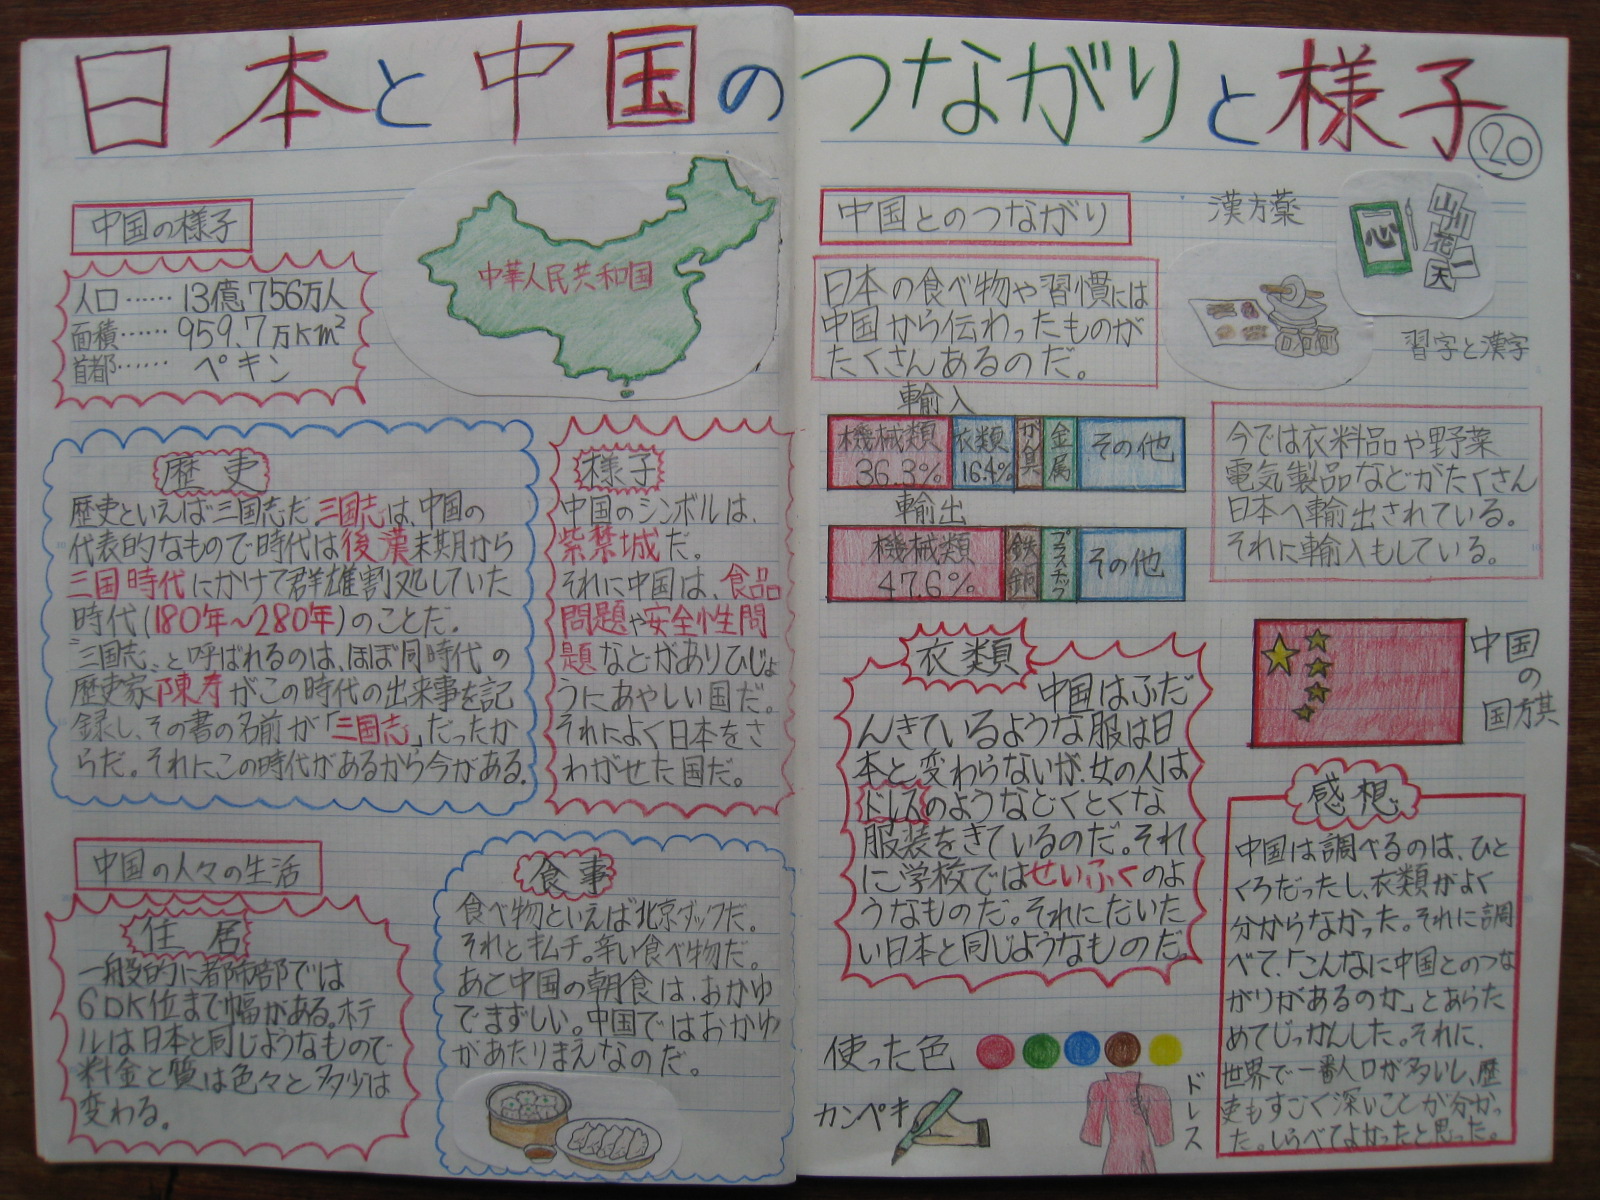 日本と中国のつながりと様子
20
中国の様子
人口……13億756万人
面積……959.7万km²
首都……ペキン
中華人民共和国
歴史
歴史といえば三国志だ三国志は、中国の
代表的なもので時代は後漢末期から
三国時代にかけて群雄割処していた
時代(180年〜280年)のことだ。
"三国志"と呼ばれるのは、ほぼ同時代の
歴史家陳寿がこの時代の出来事を記
録し、その書の名前が「三国志」だったか
らだ。それにこの時代があるから今がある。
様子
中国のシンボルは、
紫禁城だ。
それに中国は、食品
問題や安全性問
題などがありひじょ
うにあやしい国だ。
それによく日本をさ
わがせた国だ。
中国の人々の生活
住居
一般的に都市部では
6DK位まで幅がある。ホテ
ルは日本と同じようなもので
料金と質は色々と多少は
変わる。
食事
食べ物といえば北京ダックだ。
それとキムチ。辛い食べ物だ。
あと中国の朝食は、おかゆ
でまずしい。中国ではおかゆ
があたりまえなのだ。
中国とのつながり
日本の食べ物や習慣には
中国から伝わったものが
たくさんあるのだ。
漢方薬
心
山
川
花
一
天
習字と漢字
輸入
機械類
36.3%
衣類
16.4%
がん具
金属
その他
輸出
機械類
47.6%
鉄鋼
プラスチック
その他
今では衣料品や野菜
電気製品などがたくさん
日本へ輸出されている。
それに輸入もしている。
衣類
中国はふだ
んきているような服は日
本と変わらないが、女の人は
ドレスのようなとくとくな
服装をきているのだ。それ
に学校ではせいふくのよ
うなものだ。それにだいた
い日本と同じようなものだ。
中国
の
国旗
感想
中国は調べるのは、ひと
くろだったし、衣類がよく
分からなかった。それに調
べて、「こんなに中国とのつな
がりがあるのか」とあらた
めてじっかんした。それに、
世界で一番人口が多いし、歴
史もすごく深いことが分かっ
た。しらべてよかったと思った。
使った色
カンペキ
ドレス